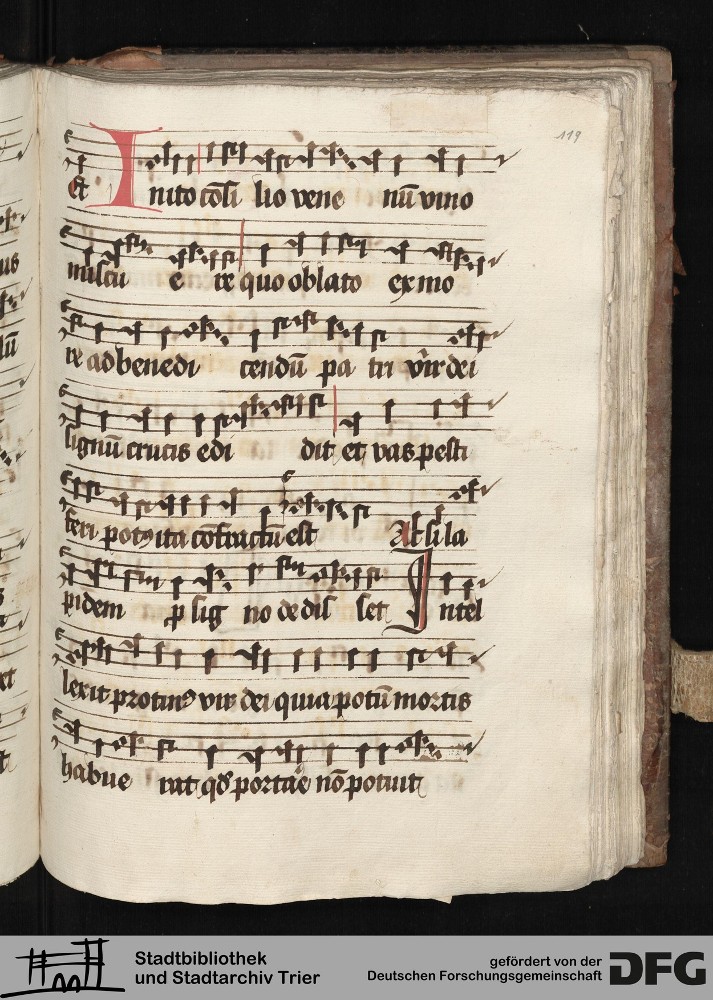 119
Et Inito cōsi lio vene nū vino
miscu e re quo oblato ex mo
re ad benedi cendū pa tri vir dei
signū crucis edi dit et vas pesti
feri potꝰ ita cōfractū est Ac si la
pidem ꝓ sig no dedis set Intel
lexit protinꝰ vir dei quia potū mortis
habue rat qd portāe nō potuit
Stadtbibliothek
und Stadtarchiv Trier
gefördert von der
Deutschen Forschungsgemeinschaft
DFG